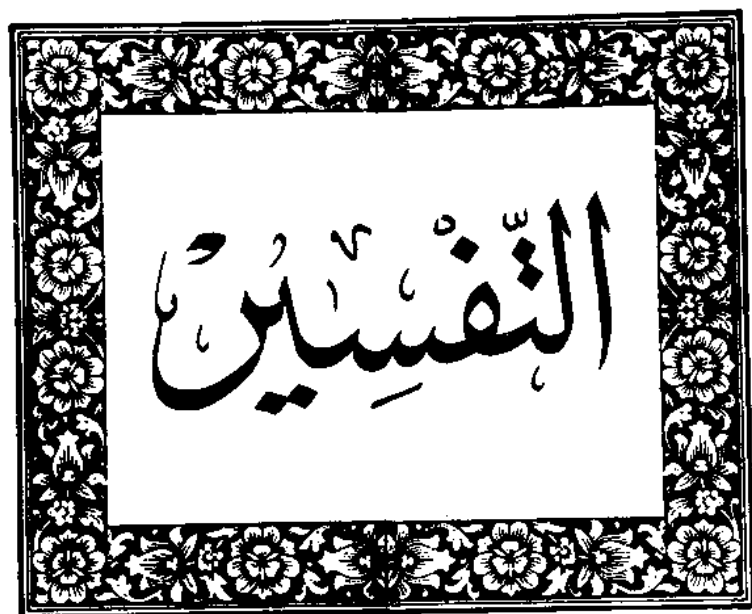 التَّفْسِيرُ